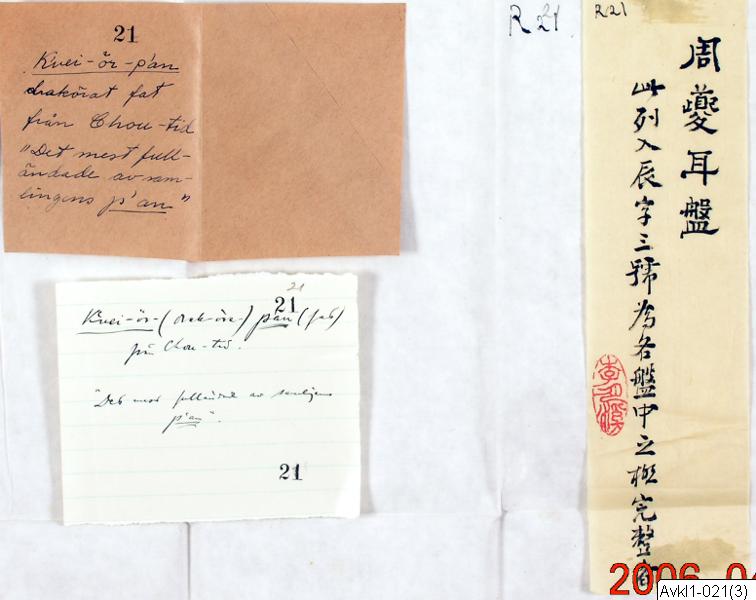 21
Kuei-ör-p'an
drakörat fat
från Chou-tid
"Det mest full-
ändade av sam-
lingens p'an"
21
21
Kuei-ör-(drak-öre-) p'an (fat)
från Chou-tid.
"Det mest fulländade av samlingens
p'an".
21
R 21
R21
周夔耳盤
此列入辰字三號為各盤中之極完整者
2006.04
Avkl1-021(3)